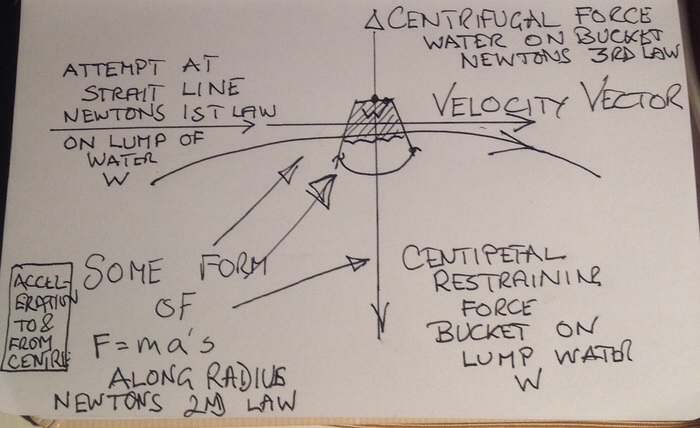 CENTRIFUGAL FORCE
WATER ON BUCKET
NEWTONS 3RD LAW
ATTEMPT AT
STRAIT LINE
NEWTONS 1ST LAW
ON LUMP OF
WATER
W
W
VELOCITY VECTOR
SOME FORM
OF
F=ma's
ALONG RADIUS
NEWTONS 2ND LAW
ACCEL-
ERATION
TO &
FROM
CENTRE
CENTIPETAL
RESTRAINING
FORCE
BUCKET ON
LUMP WATER
W